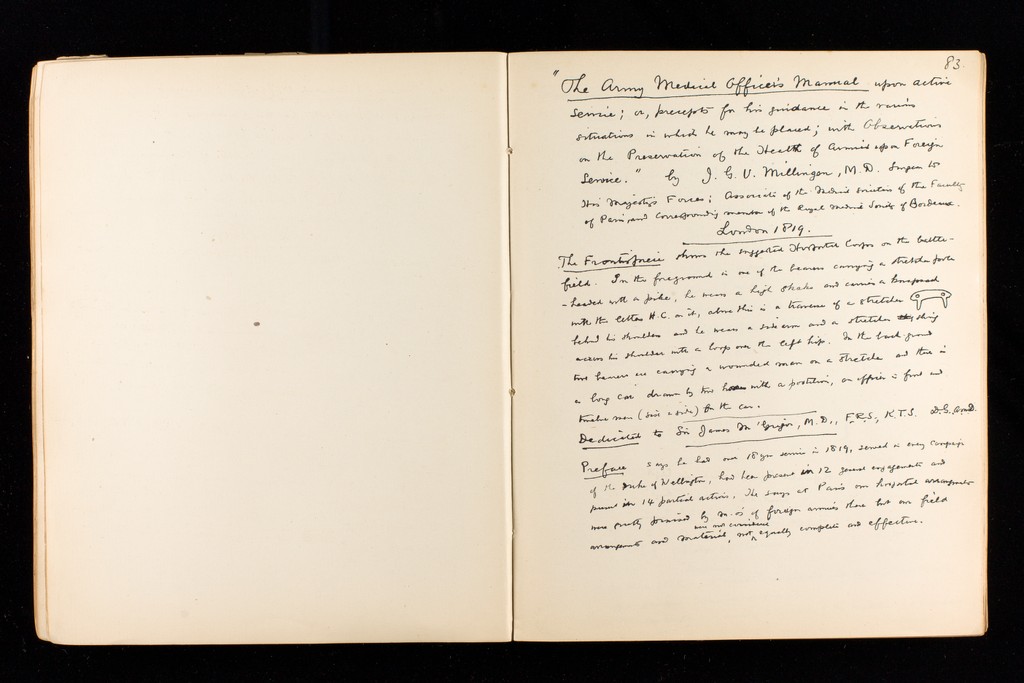 83.
"The Army Medical Officer's Manual upon active
service; or, precepts for his guidance in the various
situations in which he may be placed; with Observations
on the Preservation of the Health of Armies upon Foreign
Service." by J. G. V. Millingen, M.D. Surgeon to
His Majesty's Forces; Associate of the Medical Societies of the Faculty
of Paris, and Corresponding member of the Royal Medical Society of Bordeaux.
London 1819.
The Frontispiece shows the suggested Hospital Corps on the battle-
field. In the foreground is one of the bearers carrying a stretcher pole
-headed with a pike, he wears a high Shako and carries a knapsack
with the letters H.C. on it, above this is a traverse of a stretcher
behind his shoulders and he wears a side arm and a stretcher sling
across his shoulder with a loop over the left hip. In the back ground
two bearers are carrying a wounded man on a stretcher and there is
a long car drawn by two horses with a postilion, an officer in front and
twelve men (six a side) for the car.
Dedicated to Sir James McGrigor, M.D., F.R.S., K.T.S. D.G.
Preface says he had over 18 yrs service in 1819, served in every campaign
of the Duke of Wellington, had been present in 12 general engagements and
present in 14 partial actions. He says at Paris our hospital arrangements
were greatly admired by M.Os of foreign armies there but our field
arrangements and material, were not considered
not equally complete and effective.